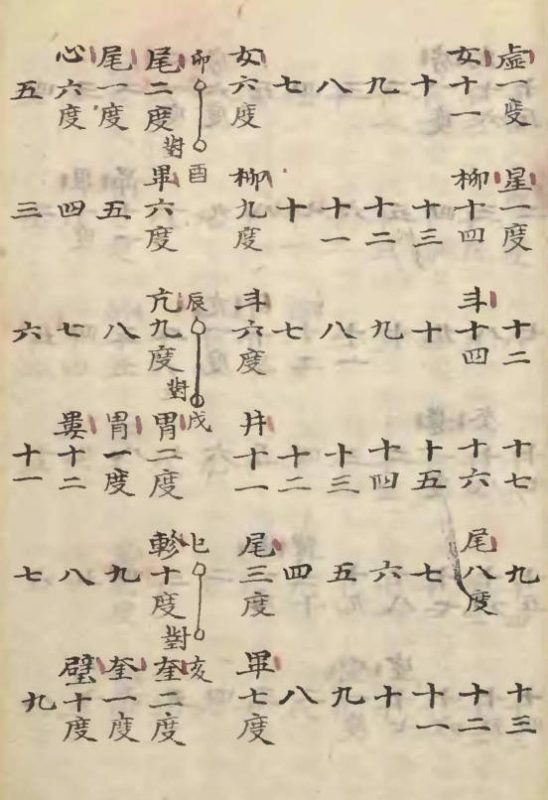 虛一度 星一度 十二 十七 九 十三
女十一 柳十四 斗十四 十六 尾八度 十二
十 十三 十 十五 七 十一
九 十二 九 十四 六 十
八 十一 八 十三 五 九
七 十 七 十二 四 八
女六度 柳九度 斗六度 井十一 尾三度 畢七度
卯對酉 辰對戌 巳對亥
尾二度 畢六度 亢九度 胃二度 軫十度 奎二度
尾一度 五 八 胃一度 九 奎一度
心六度 四 七 婁十二 八 壁十度
五 三 六 十一 七 九